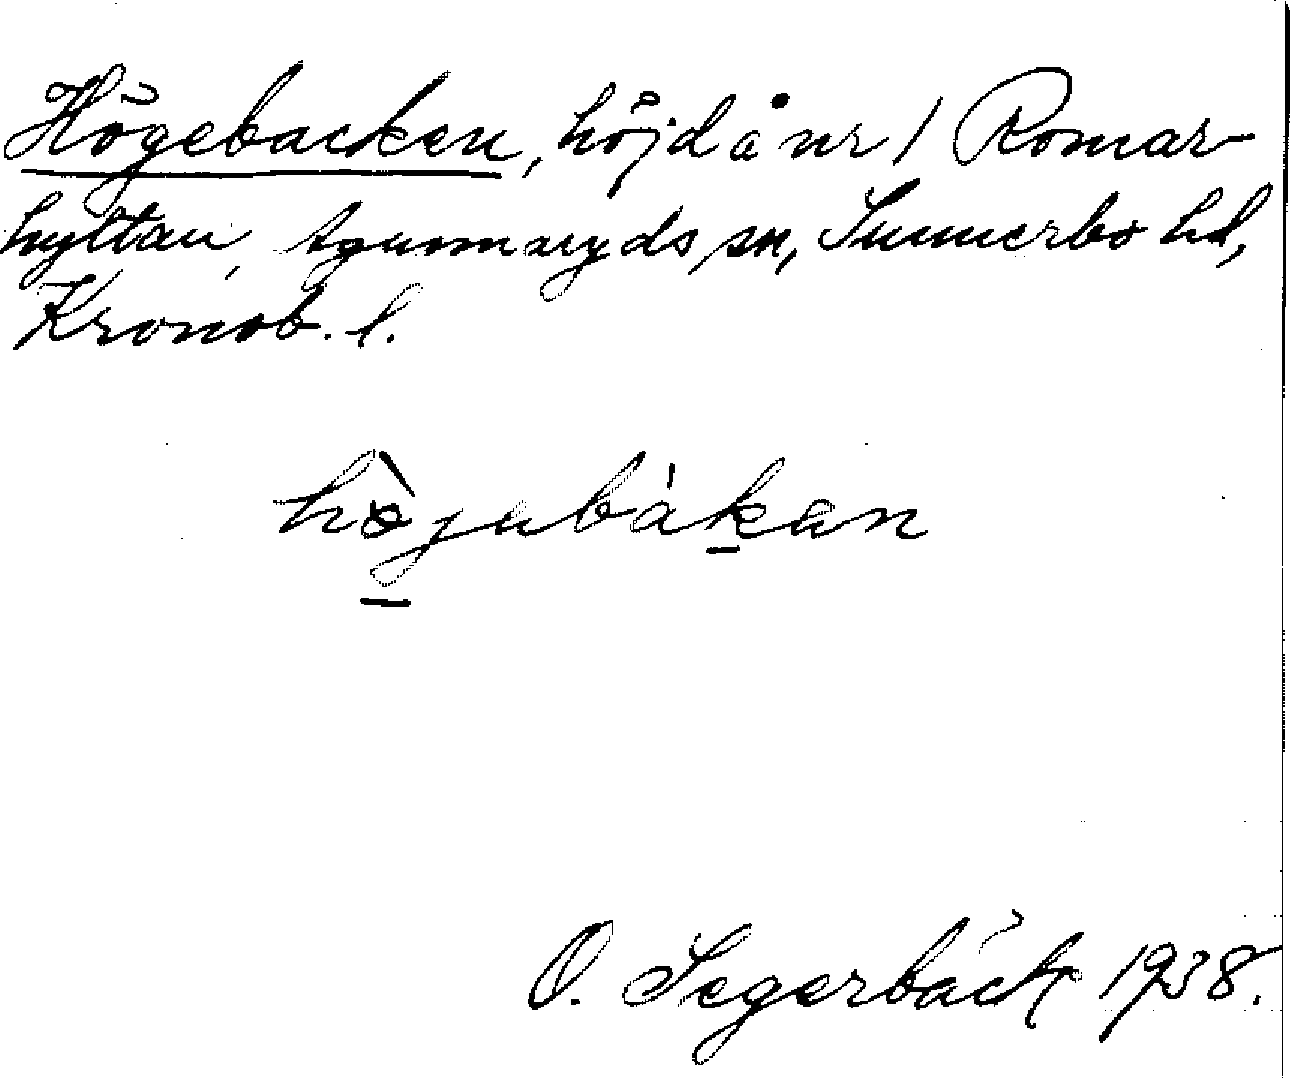 Högebacken, höjd å nr 1 Romar-
hyltan, Agunnaryds sn, Sunnerbo hd,
Kronob. l.
hö̀jabákan
O. Segerbäck 1938.